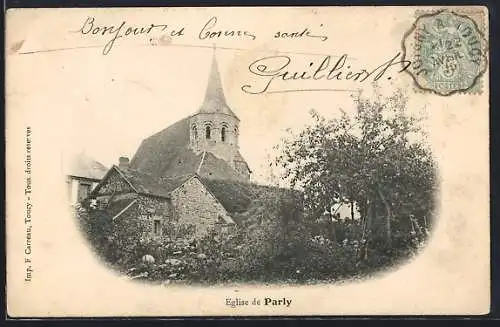 Bonjour et Bonne santé
Guillier P.
Imp. F Carreau, Toucy - Tous droits réservés
Eglise de Parly